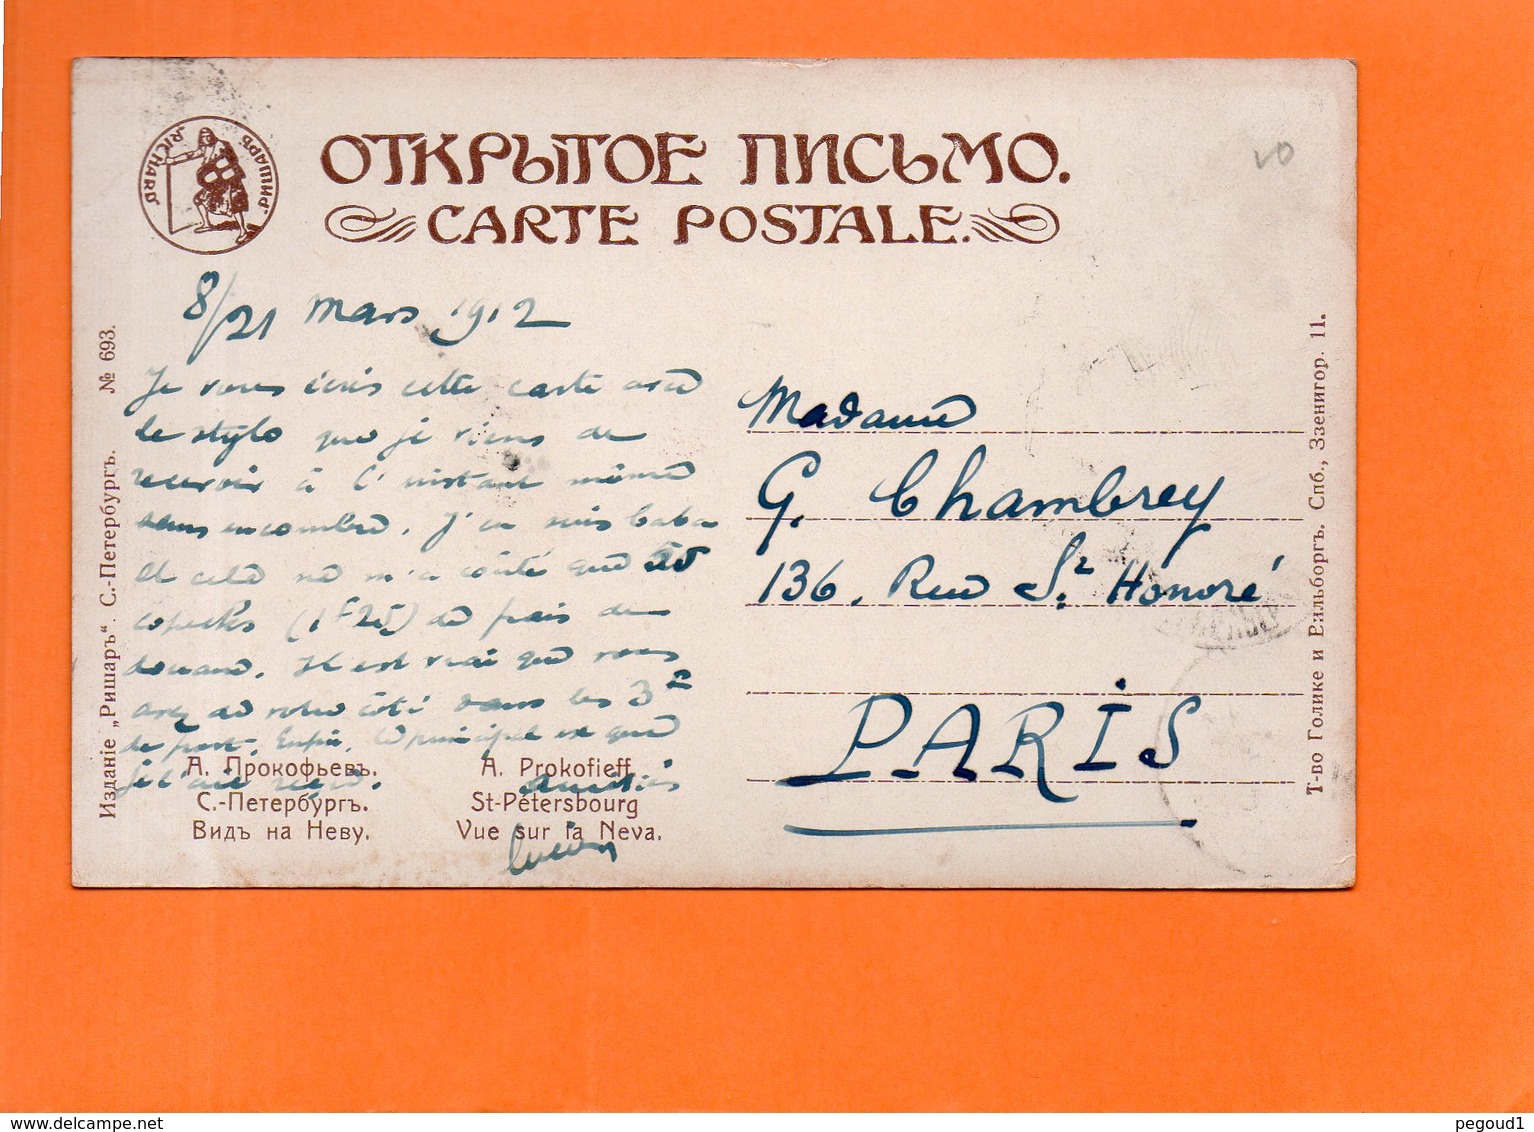 "RICHARD" "РИШАРЪ"
ОТКРЫТОЕ ПИСЬМО.
CARTE POSTALE.
VO
8/21 mars 1912
Je vous écris cette carte avec
le stylo que je viens de
recevoir à l'instant même
sans encombre. J'en suis baba
et cela ne m'a coûté que 50
copecks (1F25) de frais de
douane. Il est vrai que vous
avez de votre côté dans les 3F
de port. Enfin, le principal est que
je l'aie reçu.
Amitiés
Lucien
А. Прокофьевъ.
С.-Петербургъ.
Видъ на Неву.
A. Prokofieff
St-Pétersbourg
Vue sur la Neva.
Madame
G. Chambrey
136. Rue St. Honoré
PARIS
Изданіе „Ришаръ“. С.-Петербургъ. № 693.
Т-во Голике и Вильборгъ. Спб., Звенигор. 11.
www.delcampe.net
pegoud1